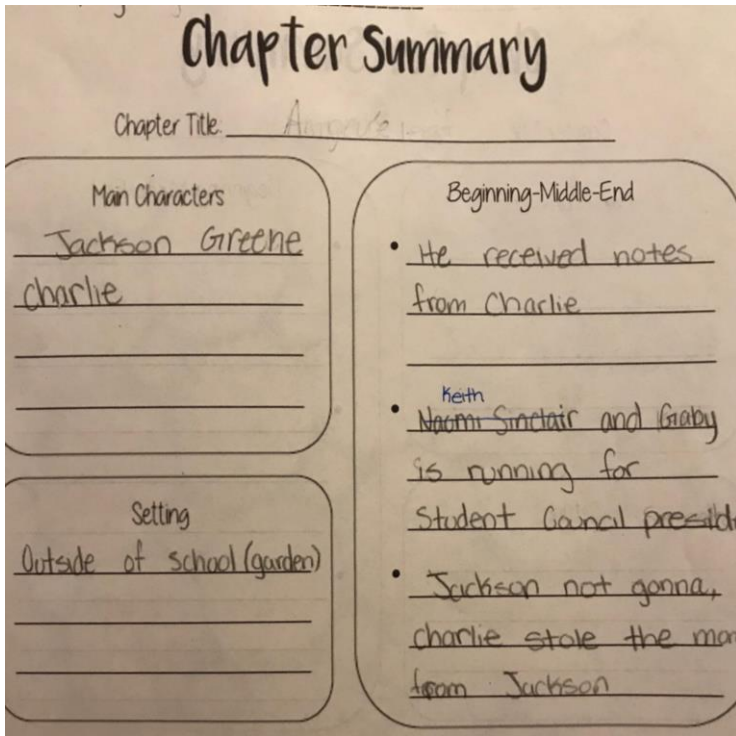 Chapter Summary
Chapter Title
Main Characters
Jackson Greene
charlie
Setting
Outside of school (garden)
Beginning-Middle-End
• He received notes
from Charlie
Keith
• Naomi Sinclair and Gaby
is running for
Student Council presid
• Jackson not gonna,
charlie stole the
from Jackson